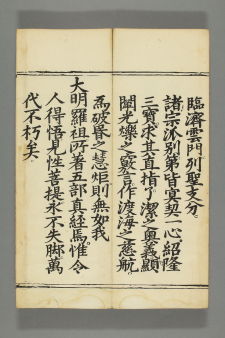 臨濟雲門列聖支分。
諸宗派別第皆冥契一心紹隆
三寶。求其直指了潔之奧義顯
闡光爍之篆言作渡海之慈航。
爲破昏之慧炬則無如我
大明羅祖所著五部真經焉。惟令
人得悟見性菩提永不失脚萬
代不朽矣。